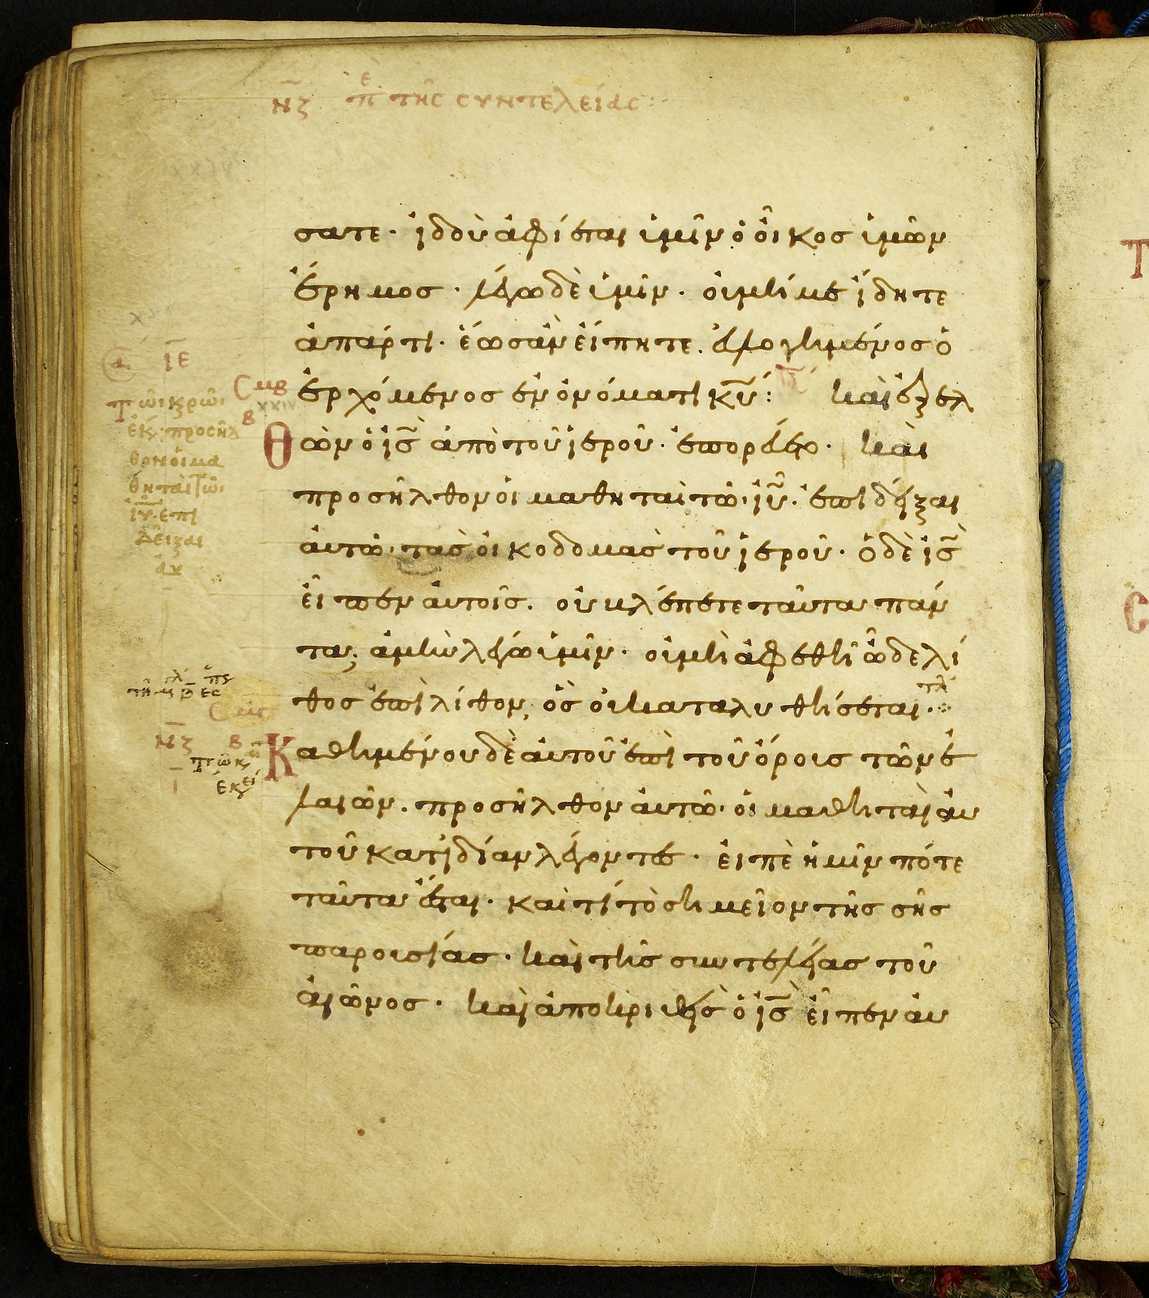 νζ πε της συντελείας
σατε· ἰδοὺ ἀφίεται ὑμῖν ὁ οἶκος ὑμῶν
ἔρημος· λέγω δὲ ὑμῖν· οὐ μή με ἴδητε
ἀπάρτι· ἕως ἂν εἴπητε. εὐλογημένος ὁ
ἐρχόμενος ἐν ὀνόματι κ̅υ̅: Καὶ ἐξελ
θὼν ὁ ι̅ς̅ ἀπὸ τοῦ ἱεροῦ· ἐπορεύετο· Καὶ
προσῆλθον οἱ μαθηταὶ τῶ ι̅υ̅· ἐπιδεῖξαι
αὐτῶ· τὰς οἰκοδομὰς τοῦ ἱεροῦ· ὁ δὲ ι̅ς̅
εἶπεν αὐτοῖς. οὐ βλέπετε ταῦτα πάν
τα; ἀμὴν λέγω ὑμῖν· οὐ μὴ ἀφεθῆ ὧδε λί
θος ἐπὶ λίθον, ὃς οὐ καταλυθήσεται·
Καθημένου δὲ αὐτοῦ ἐπὶ τοῦ ὄρους τῶν ἐ
λαιῶν. προσῆλθον αὐτῶ· οἱ μαθηταὶ αὐ
τοῦ κατιδίαν λέγοντες· εἰπὲ ἡμῖν πότε
ταῦτα ἔσται· καὶ τί τὸ σημεῖον τῆς σῆς
παρουσίας· καὶ τῆς συντελείας τοῦ
αἰῶνος· Καὶ ἀποκριθεὶς ὁ ι̅ς̅ εἶπεν αὐ
ιε
τῶι κρῶι
ἐκ· προσῆλ
θον οἱ μα
θηταὶ τῶι
ι̅υ̅· ἐπι
δεῖξαι
νζ β